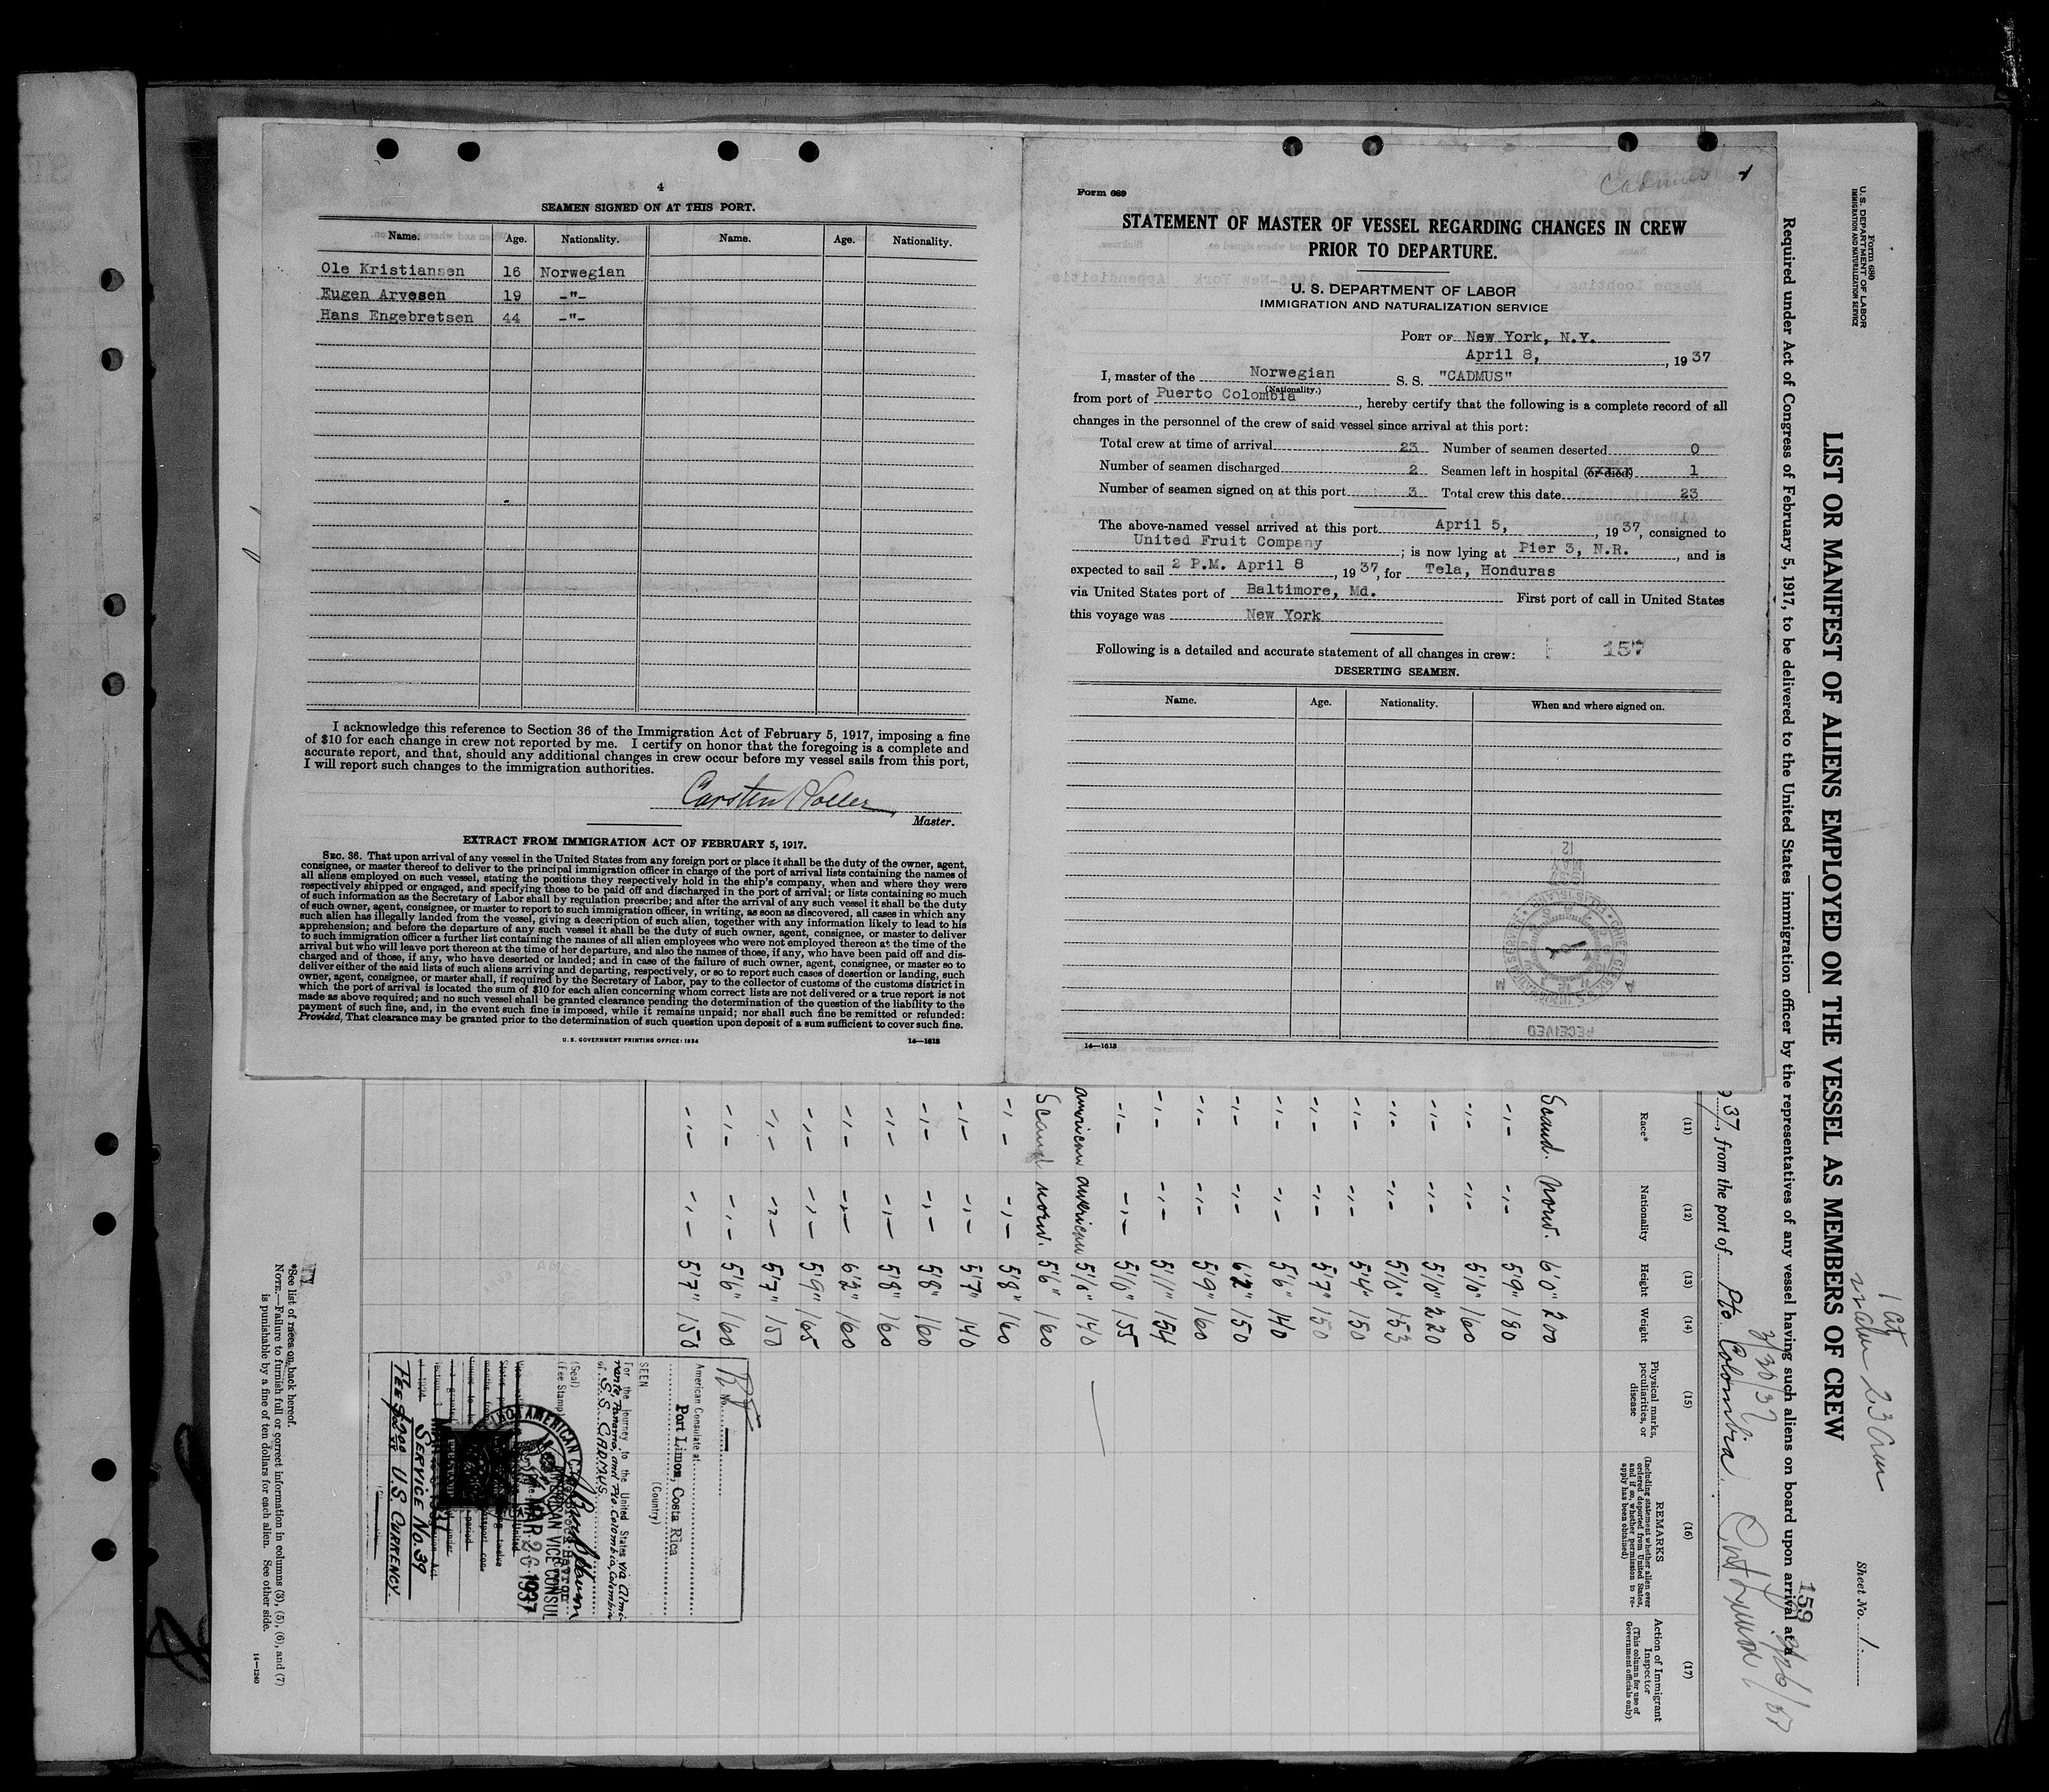 4
SEAMEN SIGNED ON AT THIS PORT.
Name. Age. Nationality. Name. Age. Nationality.
Ole Kristiansen 16 Norwegian
Eugen Arvesen 19 -"-
Hans Engebretsen 44 -"-
I acknowledge this reference to Section 36 of the Immigration Act of February 5, 1917, imposing a fine
of $10 for each change in crew not reported by me. I certify on honor that the foregoing is a complete and
accurate report, and that, should any additional changes in crew occur before my vessel sails from this port,
I will report such changes to the immigration authorities.
Carsten
Master.
EXTRACT FROM IMMIGRATION ACT OF FEBRUARY 5, 1917.
SEC. 36. That upon arrival of any vessel in the United States from any foreign port or place it shall be the duty of the owner, agent,
consignee, or master thereof to deliver to the principal immigration officer in charge of the port of arrival lists containing the names of
all aliens employed on such vessel, stating the positions they respectively hold in the ship's company, when and where they were
respectively shipped or engaged, and specifying those to be paid off and discharged in the port of arrival; or lists containing so much
of such information as the Secretary of Labor shall by regulation prescribe; and after the arrival of any such vessel it shall be the duty
of such owner, agent, consignee, or master to report to such immigration officer, in writing, as soon as discovered, all cases in which any
such alien has illegally landed from the vessel, giving a description of such alien, together with any information likely to lead to his
apprehension; and before the departure of any such vessel it shall be the duty of such owner, agent, consignee, or master to deliver
to such immigration officer a further list containing the names of all alien employees who were not employed thereon at the time of the
arrival but who will leave port thereon at the time of her departure, and also the names of those, if any, who have been paid off and dis-
charged and of those, if any, who have deserted or landed; and in case of the failure of such owner, agent, consignee, or master so to
deliver either of the said lists of such aliens arriving and departing, respectively, or so to report such cases of desertion or landing, such
owner, agent, consignee, or master shall, if required by the Secretary of Labor, pay to the collector of customs of the customs district in
which the port of arrival is located the sum of $10 for each alien concerning whom correct lists are not delivered or a true report is not
made as above required; and no such vessel shall be granted clearance pending the determination of the question of the liability to the
payment of such fine, and, in the event such fine is imposed, while it remains unpaid; nor shall such fine be remitted or refunded:
Provided, That clearance may be granted prior to the determination of such question upon deposit of a sum sufficient to cover such fine.
U.S. GOVERNMENT PRINTING OFFICE: 1934 14—1613
Cadmus
Form 689
STATEMENT OF MASTER OF VESSEL REGARDING CHANGES IN CREW
PRIOR TO DEPARTURE.
U. S. DEPARTMENT OF LABOR
IMMIGRATION AND NATURALIZATION SERVICE
PORT OF New York, N.Y.
April 8, , 1937
I, master of the Norwegian S. S. "CADMUS"
(Nationality.)
from port of Puerto Colombia, hereby certify that the following is a complete record of all
changes in the personnel of the crew of said vessel since arrival at this port:
Total crew at time of arrival 23 Number of seamen deserted 0
Number of seamen discharged 2 Seamen left in hospital (or died) 1
Number of seamen signed on at this port 3 Total crew this date 23
The above-named vessel arrived at this port April 5, , 1937, consigned to
United Fruit Company ; is now lying at Pier 3, N.R. , and is
expected to sail 2 P.M. April 8 , 1937, for Tela, Honduras
via United States port of Baltimore, Md. First port of call in United States
this voyage was New York
Following is a detailed and accurate statement of all changes in crew: 157
DESERTING SEAMEN.
Name. Age. Nationality. When and where signed on.
12
MAY
1937
RECEIVED
14—1613
Form 680
U. S. DEPARTMENT OF LABOR
IMMIGRATION AND NATURALIZATION SERVICE
Sheet No. 1
LIST OR MANIFEST OF ALIENS EMPLOYED ON THE VESSEL AS MEMBERS OF CREW
159
Required under Act of Congress of February 5, 1917, to be delivered to the United States immigration officer by the representatives of any vessel having such aliens on board upon arrival at a
37, from the port of Pto Colombia
3/30 37
(11) (12) (13) (14) (15) (16) (17)
Race* Nationality Height Weight Physical marks, peculiarities, or disease REMARKS (Including statement whether alien ever ordered deported from United States, and if so, whether permission to re-apply has been obtained) Action of Immigrant Inspector (This column for use of Government officials only)
Scand. Norw. 6'0" 200
-"- -"- 5'9" 180
-"- -"- 5'10" 160
-"- -"- 5'10" 220
-"- -"- 5'10" 153
-"- -"- 5'4" 150
-"- -"- 5'7" 150
-"- -"- 5'6" 140
-"- -"- 6'2" 150
-"- -"- 5'9" 160
-"- -"- 5'11" 154
-"- -"- 5'10" 155
american american 5'6" 140
Scand norw. 5'6" 160
-"- -"- 5'8" 160
-"- -"- 5'7" 140
-"- -"- 5'8" 160
-"- -"- 5'8" 160
-"- -"- 6'2" 160
-"- -"- 5'9" 165
-"- -"- 5'7" 150
-"- -"- 5'6" 160
-"- -"- 5'7" 158
No.
American Consulate at
Port Limon, Costa Rica
(Country)
SEEN
For the journey to the United States via Almi-
rante, Panama, and Pto. Colombia, Colombia
of S.S. CADMUS
(Seal)
(Fee Stamp)
AMERICAN VICE CONSUL
MAR 26 1937
SERVICE No. 39
FEE $2.00 U.S. CURRENCY.
*See list of races on back hereof.
NOTE.—Failure to furnish full or correct information in columns (3), (5), (6), and (7)
is punishable by a fine of ten dollars for each alien. See other side.
14—1240